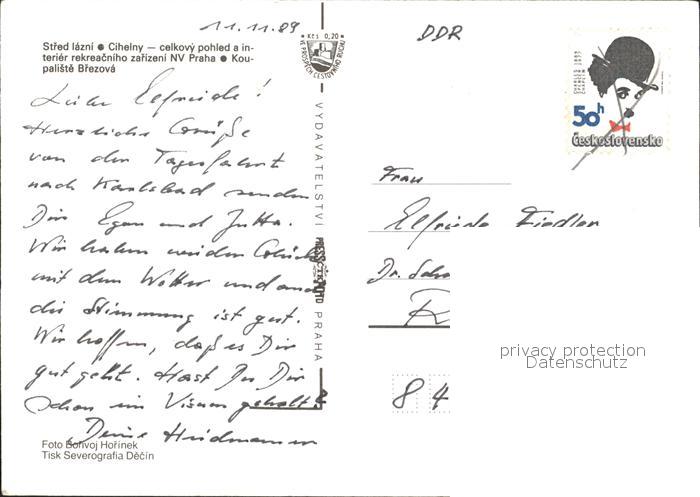 11.11.89
Střed lázní ● Cihelny — celkový pohled a in-
teriér rekreačního zařízení NV Praha ● Kou-
paliště Březová
Liebe Elfriede!
Herzliche Grüße
von der Tagesfahrt
nach Karlsbad senden
Dir Egon und Jutta.
Wir haben wieder Glück
mit dem Wetter und auch
die Stimmung ist gut.
Wir hoffen, daß es Dir
gut geht. Hast Du Dir
schon ein Visum geholt?
Deine
Foto Bořivoj Hořínek
Tisk Severografia Děčín
Kčs 0,20
VE PROSPĚCH CESTOVNÍHO RUCHU
VYDAVATELSTVÍ PRESSFOTO PRAHA
DDR
50h
Československo
Frau
Elfriede Fiedler
Dr. Scho
R
84
privacy protection
Datenschutz